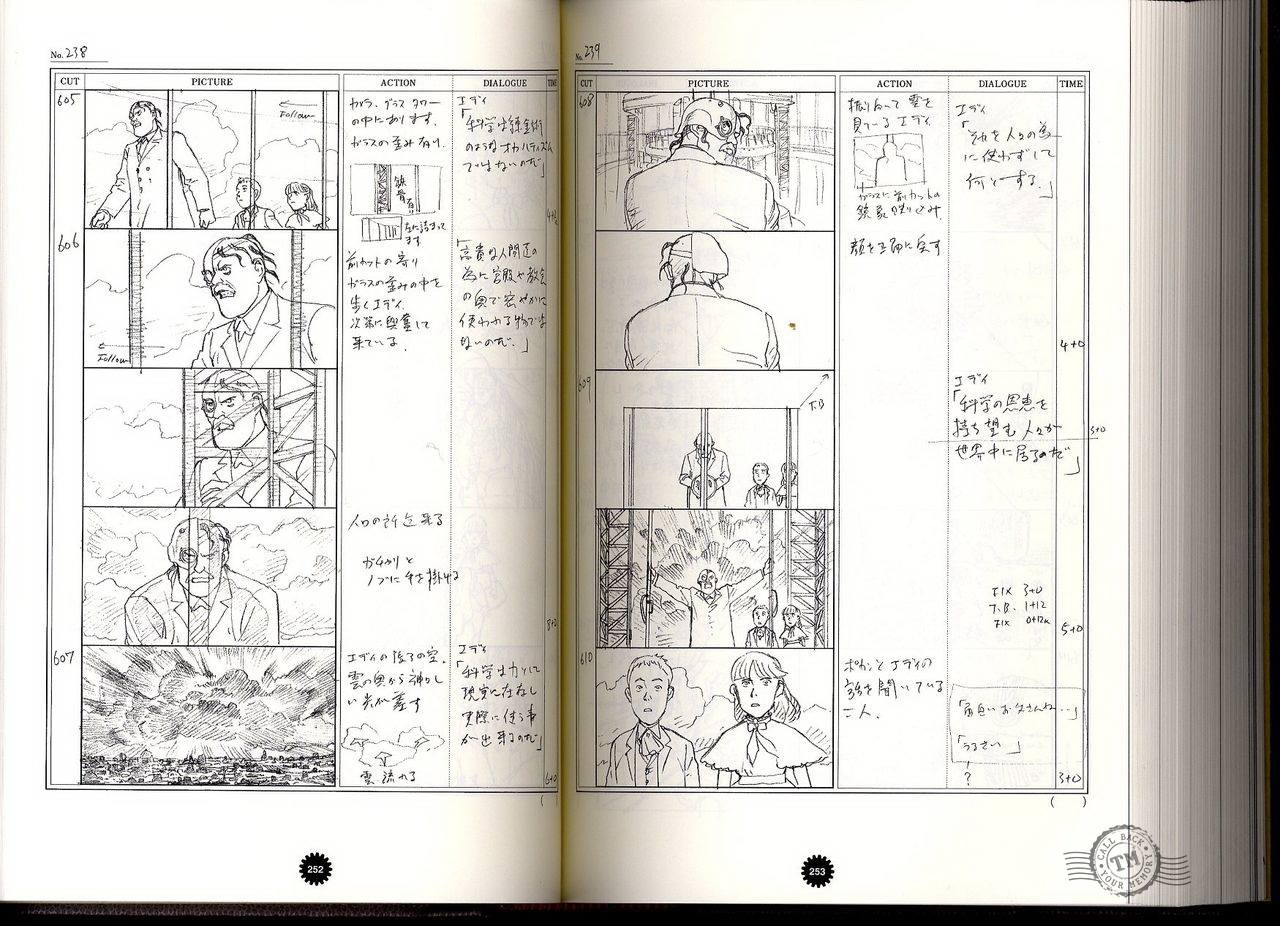 No. 238
CUT PICTURE ACTION DIALOGUE TIME
605
Follow
カメラ、グラスタワー
の中にあります。
ガラスの歪み有り。
鉄骨有
エディ
「科学は錬金術
のようなオカルティズム
ではないのだ」
4+
606
Follow
前カットの寄り
ガラスの歪みの中を
歩くエディ
次第に興奮して
来ている。
「高貴な人間達の
為に宮殿や教会
の奥で密やかに
使われる物では
ないのだ。」
入口の所迄来る
ガチャリと
ノブに手を掛ける
8+0
607
エディの後ろの空。
雲の奥から神々し
い光が差す
雲流れる
エディ
「科学は力として
現実に存在し
実際に使う事
が出来るのだ」
6+0
( )
252
No. 239
CUT PICTURE ACTION DIALOGUE TIME
608
振りむいて雲を
見ているエディ
ガラスに前カットの
映り込み
顔を正面に戻す
エディ
「それを人々の為
に使わずして
何とする。」
4+0
609
T.B
エディ
「科学の恩恵を
待ち望む人々が
世界中に居るのだ」
3+0
FIX 3+0
T.B. 1+12
FIX 0+12
5+0
610
ポカンとエディの
話を聞いている
二人。
「面白いお父さんね…」
「うるさい」
?
3+0
( )
253
CALL BACK
TM
YOUR MEMORY